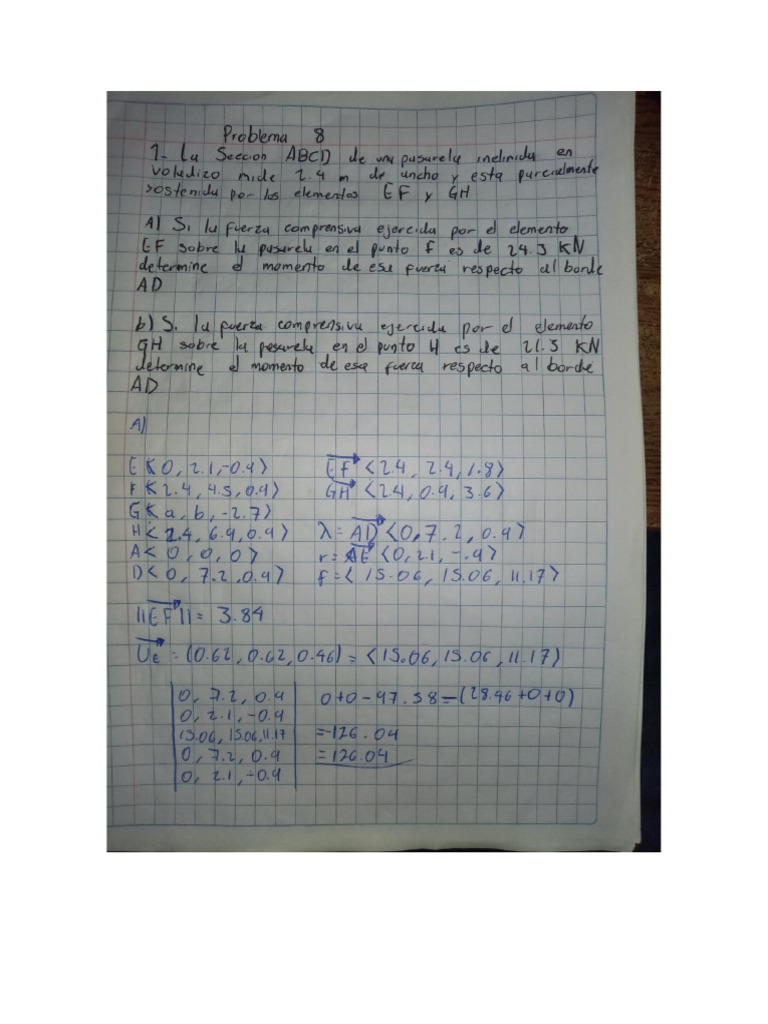 Problema 8
1- La Sección ABCD de una pasarela inclinida en
voladizo mide 2.4 m de ancho y esta parcialmente
sostenida por los elementos EF y GH
A) Si la fuerza comprensiva ejercida por el elemento
EF sobre la pasarela en el punto f es de 24.3 KN
determine el momento de esa fuerza respecto al borde
AD
b) Si la fuerza comprensiva ejercida por el elemento
GH sobre la pasarela en el punto H es de 21.3 KN
determine el momento de esa fuerza respecto al borde
AD
A)
E<0, 2.1, -0.9> EF <2.4, 2.4, 1.8>
F<2.4, 4.5, 0.9> GH <2.4, 0.9, 3.6>
G<a, b, -2.7>
H<2.4, 6.9, 0.9> λ = AD <0, 7.2, 0.9>
A<0, 0, 0> r = AE <0, 2.1, -.9>
D<0, 7.2, 0.9> f = <15.06, 15.06, 11.17>
||EF|| = 3.84
UE = (0.62, 0.62, 0.46) = <15.06, 15.06, 11.17>
0, 7.2, 0.9 0+0-97.58-(28.46+0+0)
0, 2.1, -0.9
15.06, 15.06, 11.17 =-126.04
0, 7.2, 0.9 =126.04
0, 2.1, -0.9